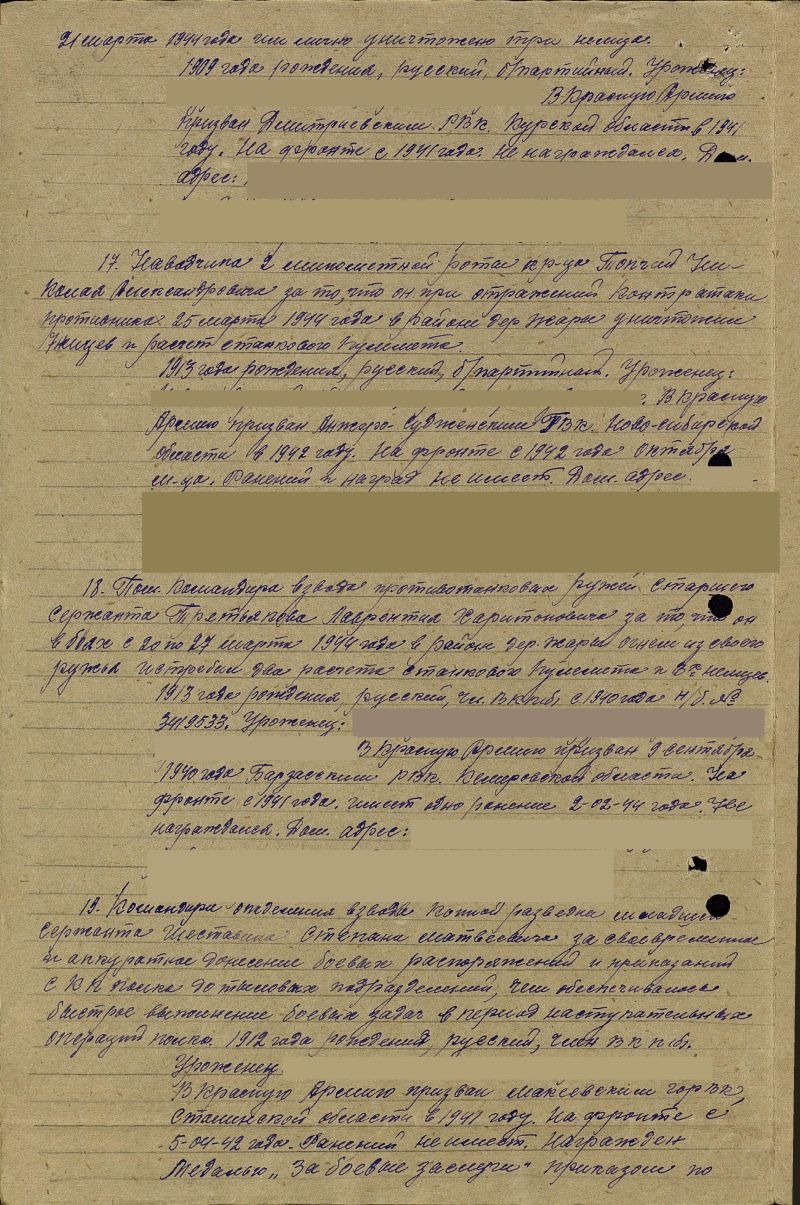 21 марта 1944 года им лично уничтожено три немца.
1909 года рождения, русский, б/партийный. Уроженец:
В Красную Армию
призван Дмитриевским РВК. Курской области в 1941
году. На фронте с 1941 года. Не награждался. Дом.
адрес:
17. Наводчика 2 минометной роты кр-ца Топчий Ни-
колая Александровича за то, что он при отражении контратаки
противника 25 марта 1944 года в районе дер. Жары уничтожил
7 немцев и расчет станкового пулемета.
1913 года рождения, русский, б/партийный. Уроженец:
В Красную
Армию призван Анжеро-Судженским ГВК. Ново-Сибирской
области в 1942 году. На фронте с 1942 года октября
м-ца. Ранений и наград не имеет. Дом. адрес.
18. Пом. командира взвода противотанковых ружей старшего
сержанта Третьякова Лаврентия Харитоновича за то, что он
в боях с 20 по 27 марта 1944 года в район дер. Жары огнем из своего
ружья истребил два расчета станкового пулемета и немцев.
1913 года рождения, русский, чл. ВКП/б/ с 1940 года п/б. №
3419533. Уроженец:
В Красную Армию призван 9 сентября
1940 года Барзасским РВК. Кемеровской области. На
фронте с 1941 года. имеет одно ранение 2-02-44 года. Не
награждался. Дом. адрес:
19. Командира отделения взвода конной разведки младшего
сержанта Степана Матвеевича за своевременное
и аккуратное донесение боевых распоряжений и приказаний
с КП полка до тыловых подразделений, чем обеспечивалось
быстрое выполнение боевых задач в период наступательных
операций полка. 1912 года рождения, русский, член ВКП/б/.
Уроженец.
В Красную Армию призван Макеевским ГорВК,
Сталинской области в 1941 году. На фронте с
5-04-42 года. Ранений не имеет. Награжден
Медалью „За боевые заслуги" приказом по